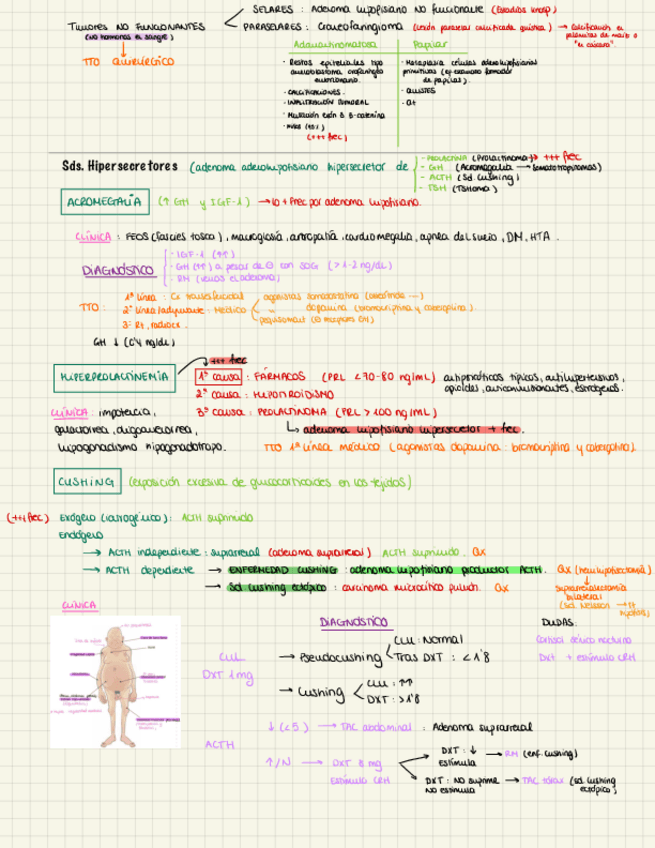 SELARES : Adenoma hipofisario No funcionante (Estadios knosp)
Tumores NO FUNCIONANTES
(No hormonas en sangre)
PARASELARES : Craneofaringioma (Lesión paraselar calcificada quística) → Calcificación en palomitas de maíz o "en cáscara".
TTO QUIRÚRGICO
Adamantinomatoso
Papilar
· Restos epiteliales tipo
· Metaplasia células adenohipofisarias
primitivas
de papilas).
· CALCIFICACIONES.
· QUISTES
· INFILTRACIÓN TUMORAL
· Mutación exón 3 β-catenina
(+++ frec)
Sds. Hipersecretores (adenoma adenohipofisario hipersecretor de
- PROLACTINA (Prolactinoma) → +++ frec
- GH (Acromegalia → somatotropinomas)
- ACTH (Sd. Cushing)
- TSH (TSHoma)
ACROMEGALIA (↑ GH y IGF-1) → lo + frec por adenoma hipofisario.
CLÍNICA : FEOS (Facies tosca), macroglosia, artropatía, cardiomegalia, apnea del sueño, DM, HTA.
DIAGNÓSTICO
· IGF-1 (↑↑)
· GH (↑↑) a pesar de ⊖ con SOG (>1-2 ng/dL)
· RM (vemos el adenoma)
TTO :
1ª línea : Cx transesfenoidal
2ª línea/adyuvante : Médico
agonistas somatostatina
" dopamina (bromocriptina y cabergolina)
pegvisomant (⊖ receptores GH)
3ª Rt, radiocx.
GH ↓ (0'4 ng/dL)
+++ frec
HIPERPROLACTINEMIA
1ª causa : FÁRMACOS (PRL <70-80 ng/mL) antipsicóticos típicos, antihipertensivos,
opioides, anticonvulsionantes, estrógenos.
2ª causa : HIPOTIROIDISMO
CLÍNICA : impotencia,
3ª causa : PROLACTINOMA (PRL >100 ng/mL)
galactorrea, oligomenorrea,
↳ adenoma hipofisario hipersecretor + frec.
hipogonadismo hipogonadotropo.
TTO 1ª línea médico (agonistas dopamina : bromocriptina y cabergolina).
CUSHING (exposición excesiva de glucocorticoides en los tejidos)
(+++ frec) Exógeno (iatrogénico) : ACTH suprimido
Endógeno
→ ACTH independiente : suprarrenal (adenoma suprarrenal) ACTH suprimido. Qx
→ ACTH dependiente → ENFERMEDAD CUSHING : adenoma hipofisario productor ACTH. Qx (hemihipofisectomía)
→ Sd. Cushing ectópico : carcinoma microcítico pulmón. Qx
suprarrenalectomía
bilateral
(Sd. Nelson →
CLÍNICA
DIAGNÓSTICO
DUDAS:
CLU
DXT 1mg
→ Pseudocushing
CLU : Normal
Tras DXT : <1'8
→ Cushing
CLU : ↑↑
DXT : >1'8
Cortisol sérico nocturno
DXT + estímulo CRH
ACTH
↓ (<5) → TAC abdominal : Adenoma suprarrenal
↑/N → DXT 8 mg
Estímulo CRH
DXT : ↓
Estimula
→ RM (enf. Cushing)
DXT : NO suprime
NO estimula
→ TAC tórax (sd. Cushing
ectópico)